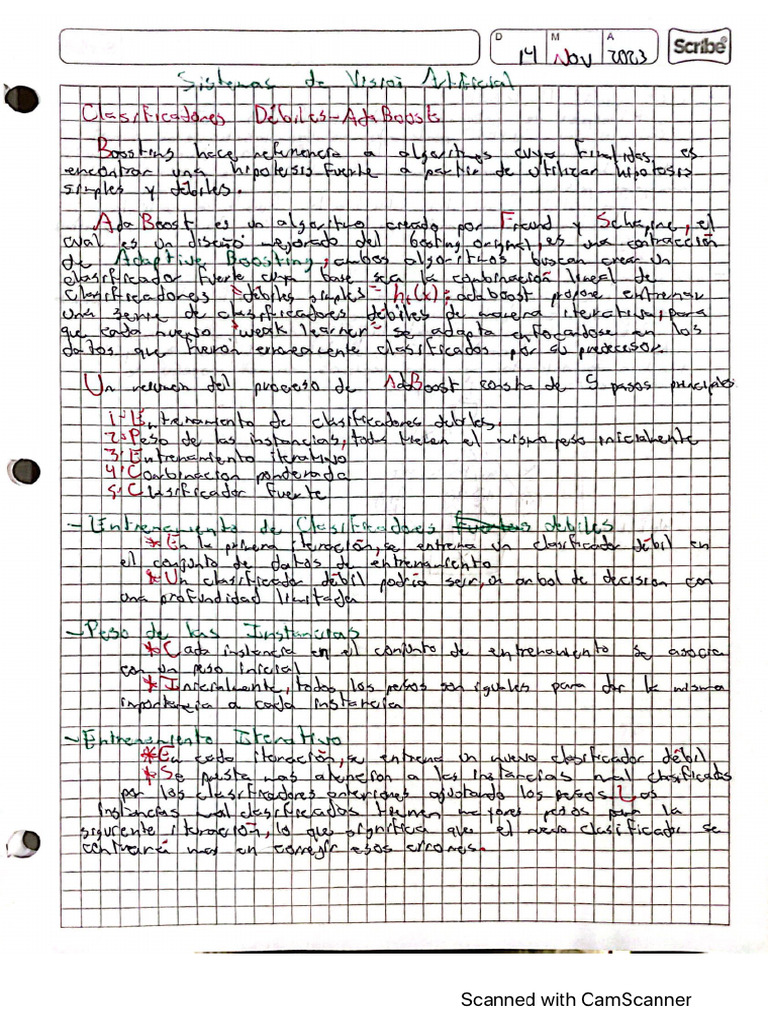 D M A
14 Nov 2023
Scribe
Sistemas de Visión Artificial
Clasificadores Débiles - AdaBoost
Boosting hace referencia a algoritmos cuya finalidad es
encontrar una hipotesis fuerte a partir de utilizar hipotesis
simples y débiles.
AdaBoost es un algoritmo creado por Freund y Schapire, el
cual es un diseño mejorado del boosting original, es una contracción
de Adaptive Boosting, ambos algoritmos buscan crear un
clasificador fuerte cuya base sea la combinación lineal de
clasificadores "débiles simples" ht(x); adaboost propone entrenar
una serie de clasificadores débiles de manera iterativa, para
que cada nuevo "weak learner" se adapta enfocandose en los
datos que fueron erroneamente clasificados por su predecesor.
Un resumen del proceso de AdaBoost consta de 5 pasos principales
1.- Entrenamiento de clasificadores debiles.
2.- Peso de las instancias, todas tienen el mismo peso inicialmente
3.- Entrenamiento iterativo
4.- Combinacion ponderada
5.- Clasificador Fuerte
- Entrenamiento de Clasificadores debiles
* En la primera iteración, se entrena un clasificador débil en
el conjunto de datos de entrenamiento
* Un clasificador débil podría ser, un arbol de decision con
una profundidad limitada
- Peso de las Instancias
* Cada instancia en el conjunto de entrenamiento se asocia
con un peso inicial
* Inicialmente, todos los pesos son iguales para dar la misma
importancia a cada instancia
- Entrenamiento Iterativo
* En cada iteración, se entrena un nuevo clasificador débil
* Se presta mas atencion a las instancias mal clasificadas
por los clasificadores anteriores ajustando los pesos. Los
instancias mal clasificados tienen mayores pesos para la
siguiente iteración, lo que significa que el nuevo clasificador se
centrará mas en corregir esos errores.
Scanned with CamScanner